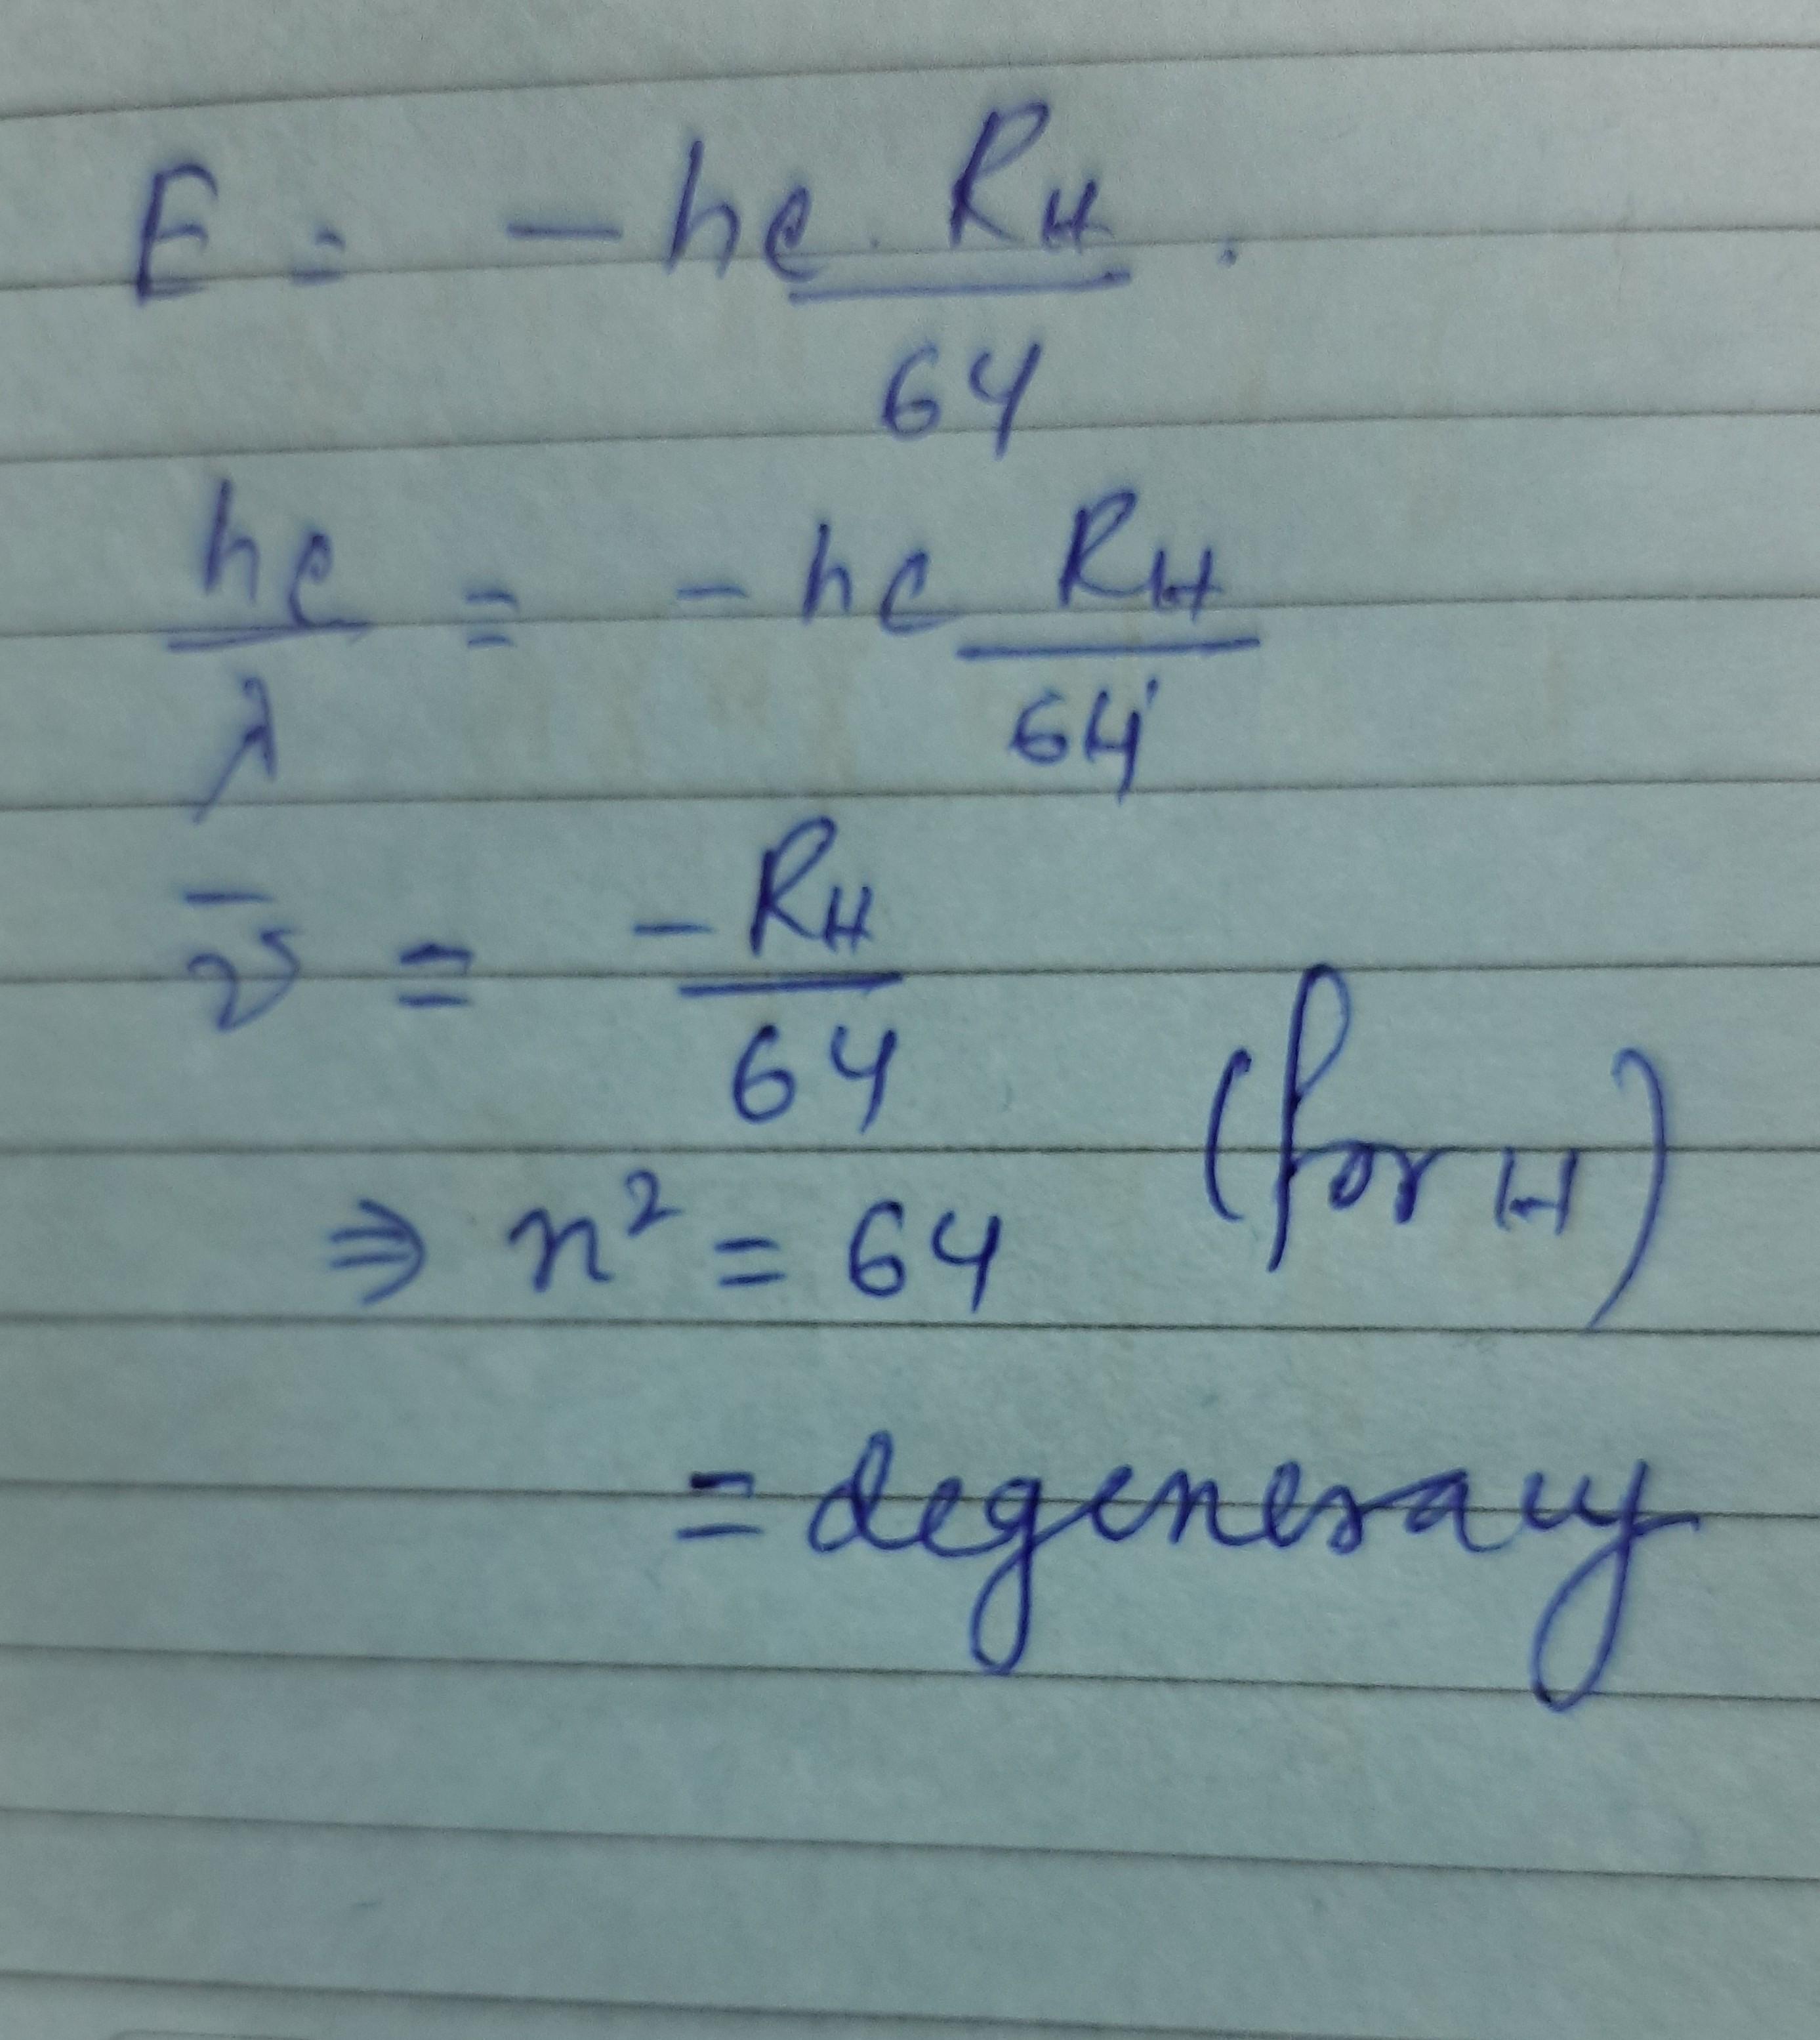 E = - hc . RH / 64 .
hc / λ = - hc RH / 64
ν̄ = - RH / 64
⇒ n² = 64 (for H)
= degeneracy